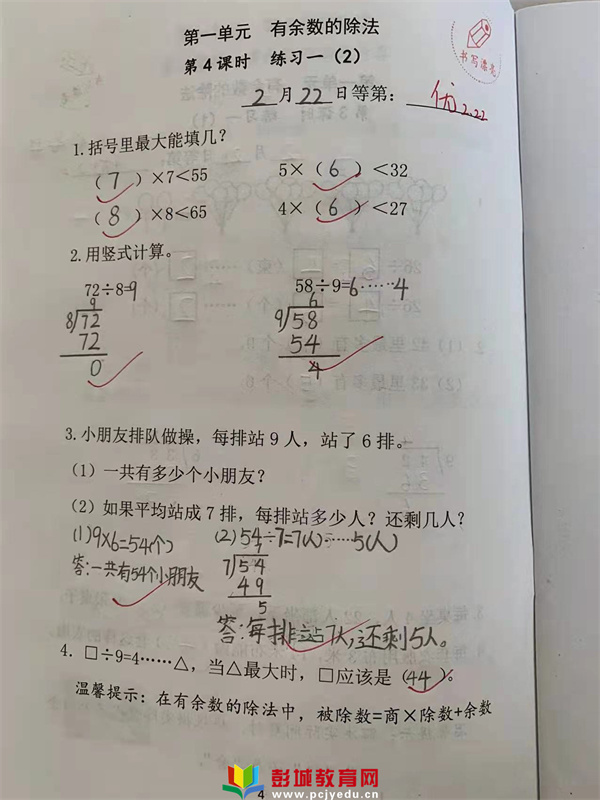 第一单元 有余数的除法
第4课时 练习一（2）
书写漂亮
2月22日等第：优2.22
1.括号里最大能填几？
（7）×7<55 5×（6）<32
（8）×8<65 4×（6）<27
2.用竖式计算。
72÷8=9 58÷9=6……4
9 6
8 72 9 58
72 54
0 4
3.小朋友排队做操，每排站9人，站了6排。
（1）一共有多少个小朋友？
（2）如果平均站成7排，每排站多少人？还剩几人？
(1)9×6=54(个) (2)54÷7=7(人)……5(人)
7
7 54
答:一共有54个小朋友 49
5
答:每排站7人,还剩5人。
4. □÷9=4……△，当△最大时，□应该是（44）。
温馨提示：在有余数的除法中，被除数=商×除数+余数
4
彭城教育网
www.pcjyedu.cn